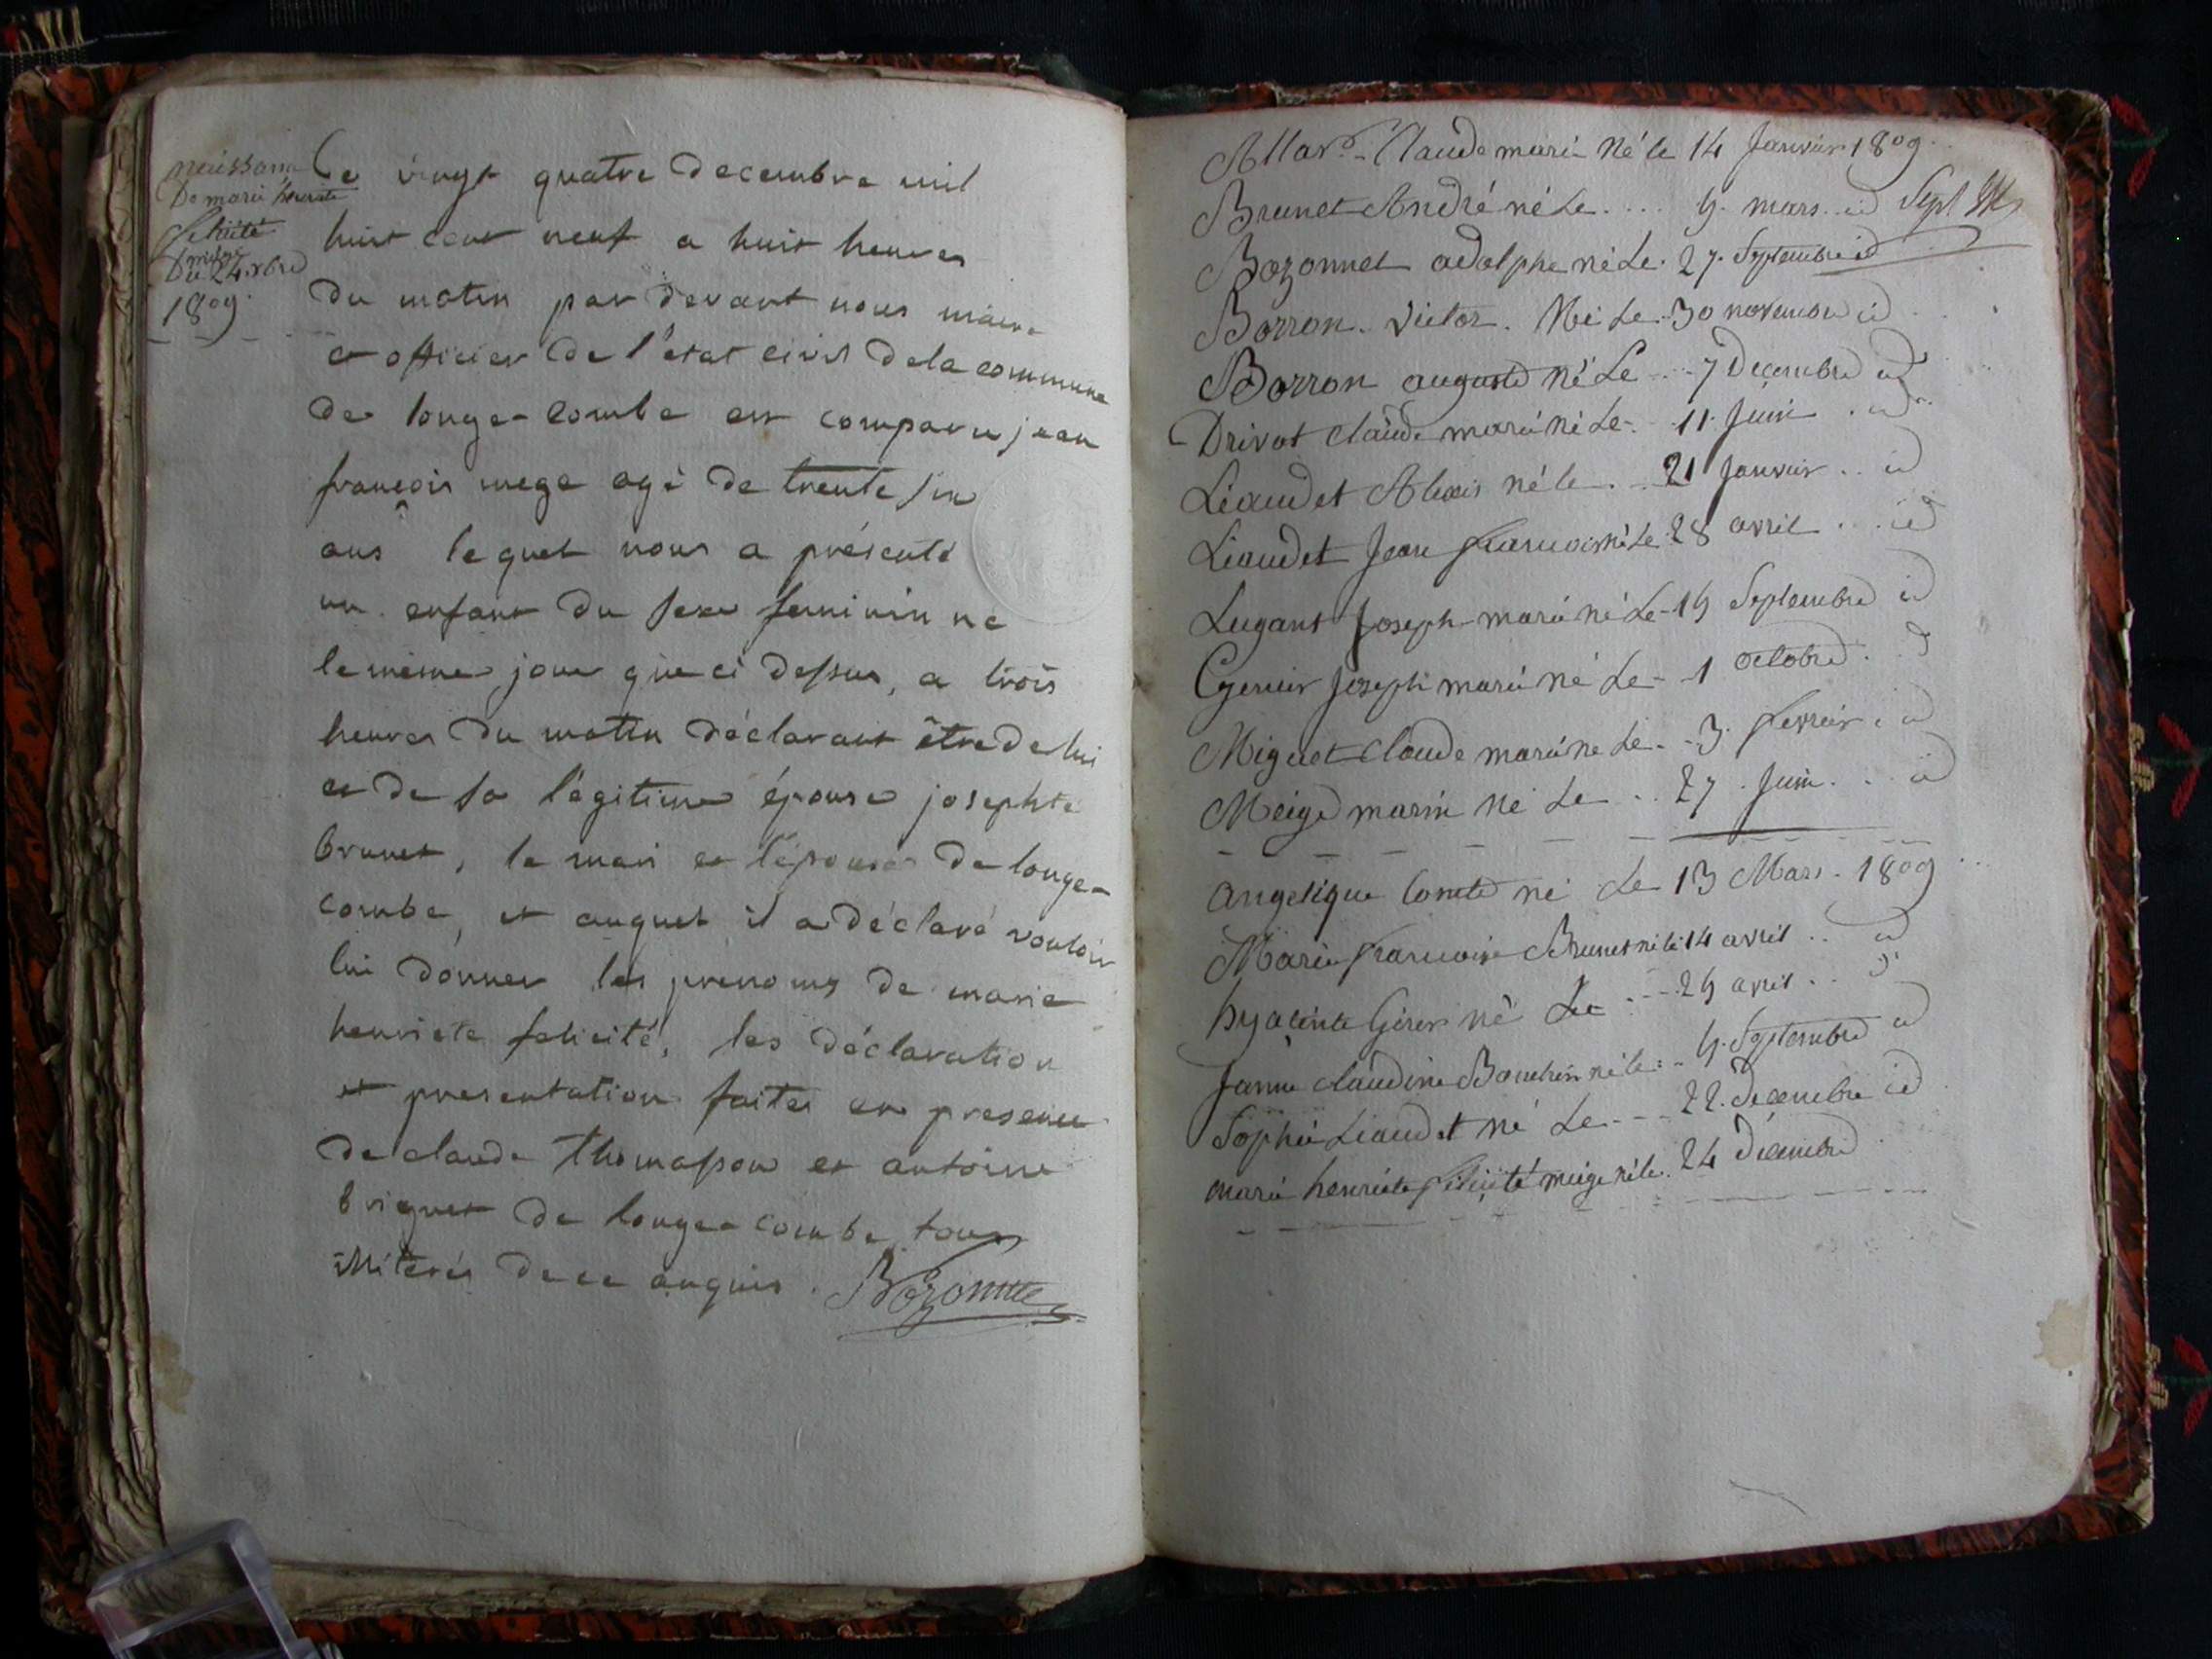 naissance
De marie henriete
felicité
meige
Du 24 xbre
1809
Le vingt quatre decembre mil
huit cent neuf a huit heures
du matin par devant nous maire
et officier de l'état civil de la commune
de longe-combe est comparu jean
françois mege agé de trente six
ans lequel nous a présenté
un enfant du sexe feminin né
le même jour que ci dessus, a trois
heures du matin déclarant être de lui
et de sa légitime épouse josephte
brunet, le mari et l'épouse de longe-
combe, et auquel il a déclaré vouloir
lui donner les prenoms de marie
henriete felicité, les déclaration
et presentation faites en presence
de claude thomasson et antoine
briguet de longe-combe tous
illiterés de ce enquis. Bozonnet
Allard Claude marie Né le 14 Janvier 1809
Brunet André né Le .... 9. mars .. id Sept
Bozonnet adolphe né Le. 27. Septembre id
Borron. Victor. Né Le. 30 novembre id
Borron auguste Né Le ... 7 Décembre id
Drivot claude marie né Le. 11. Juin . id
Liaudet Alexis né le ... 21 Janvier .. id
Liaudet Jean francois né Le 28 avril ... id
Lugant Joseph-marie né Le-19 Septembre id
Joseph marie né Le - 1 octobre . d
Miguet Claude marie ne Le. - 3. fevrier . id
Meige marin né Le .. 27. Juin. .. id
Angelique Comte né Le 13 Mars. 1809
Marie francoise Brunet né le 14 avril .. id
hyacinte né Le ... 29 avril .. d
Janne claudine né le - 9. Septembre id
Sophie Liaudet né Le. -- 22. Décembre id
marie henriete félicité meige né le. 24 décembre